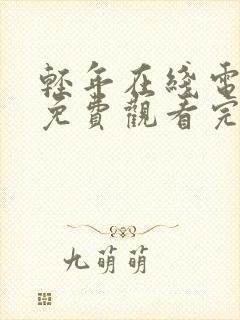 輕年在綫電
免費觀看完
九萌萌